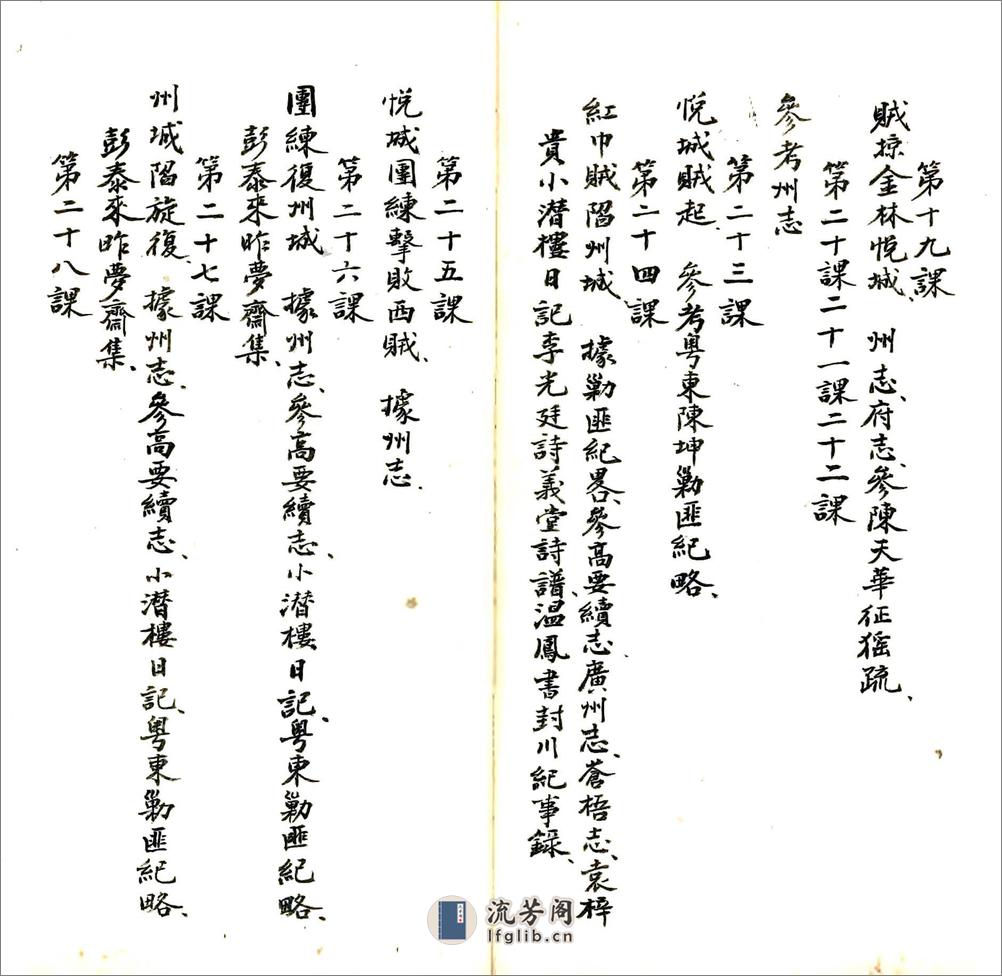 第十九課
賊掠金林悦城、　州志、府志、參陳天華征猺疏、
第二十課二十一課二十二課
參考州志
第二十三課
悦城賊起　參考粤東陳坤勦匪紀略、
第二十四課
紅巾賊陷州城、　據勦匪紀畧、參高要續志、廣州志、蒼梧志、袁梓
貴小潜樓日記、李光廷詩義堂詩譜、温鳳書封川紀事録、
第二十五課
悦城團練擊敗西賊、　據州志、
第二十六課
團練復州城　據州志、參高要續志、小潜樓日記、粤東勦匪紀略、
彭泰來昨夢齋集、
第二十七課
州城陷旋復　據州志、參高要續志、小潜樓日記、粤東勦匪紀略、
彭泰來昨夢齋集、
第二十八課
流芳阁
lfglib.cn